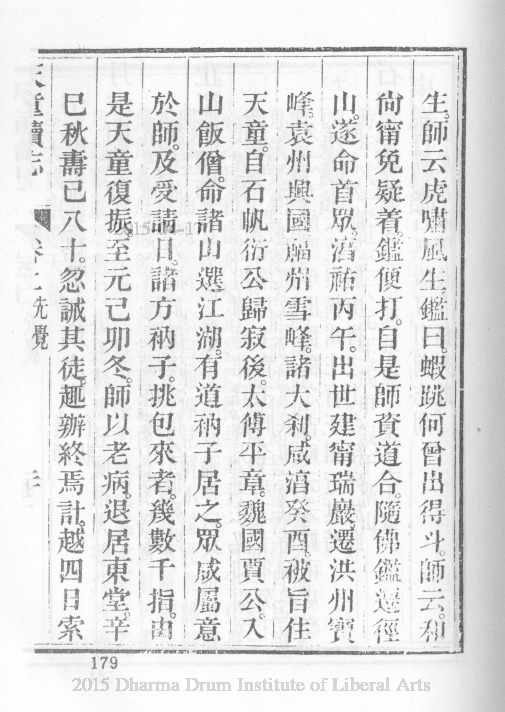 生。師云虎嘯風生鑑曰。蝦跳何曾出得斗。師云。和
尙甯免疑着。鑑便打。自是師資道合。隨佛鑑遷徑
山。遂命首眾。湻祐丙午。出世建甯瑞巖。遷洪州寶
峰。袁州興國福州雪峰。諸大刹。咸湻癸酉。被旨住
天童。自石帆衍公歸寂後。太傅平章。魏國賈公。入
山飯僧。命諸山選江湖。有道衲子居之。眾咸屬意
於師。及受請日。諸方衲子。挑包來者。幾數千指。由
是天童復振。至元己卯冬。師以老病。退居東堂。辛
巳秋壽已八十。忽誠其徒。趣辦終焉計。越四日索
天童續志
卷上 先覺
179
2015 Dharma Drum Institute of Liberal Arts